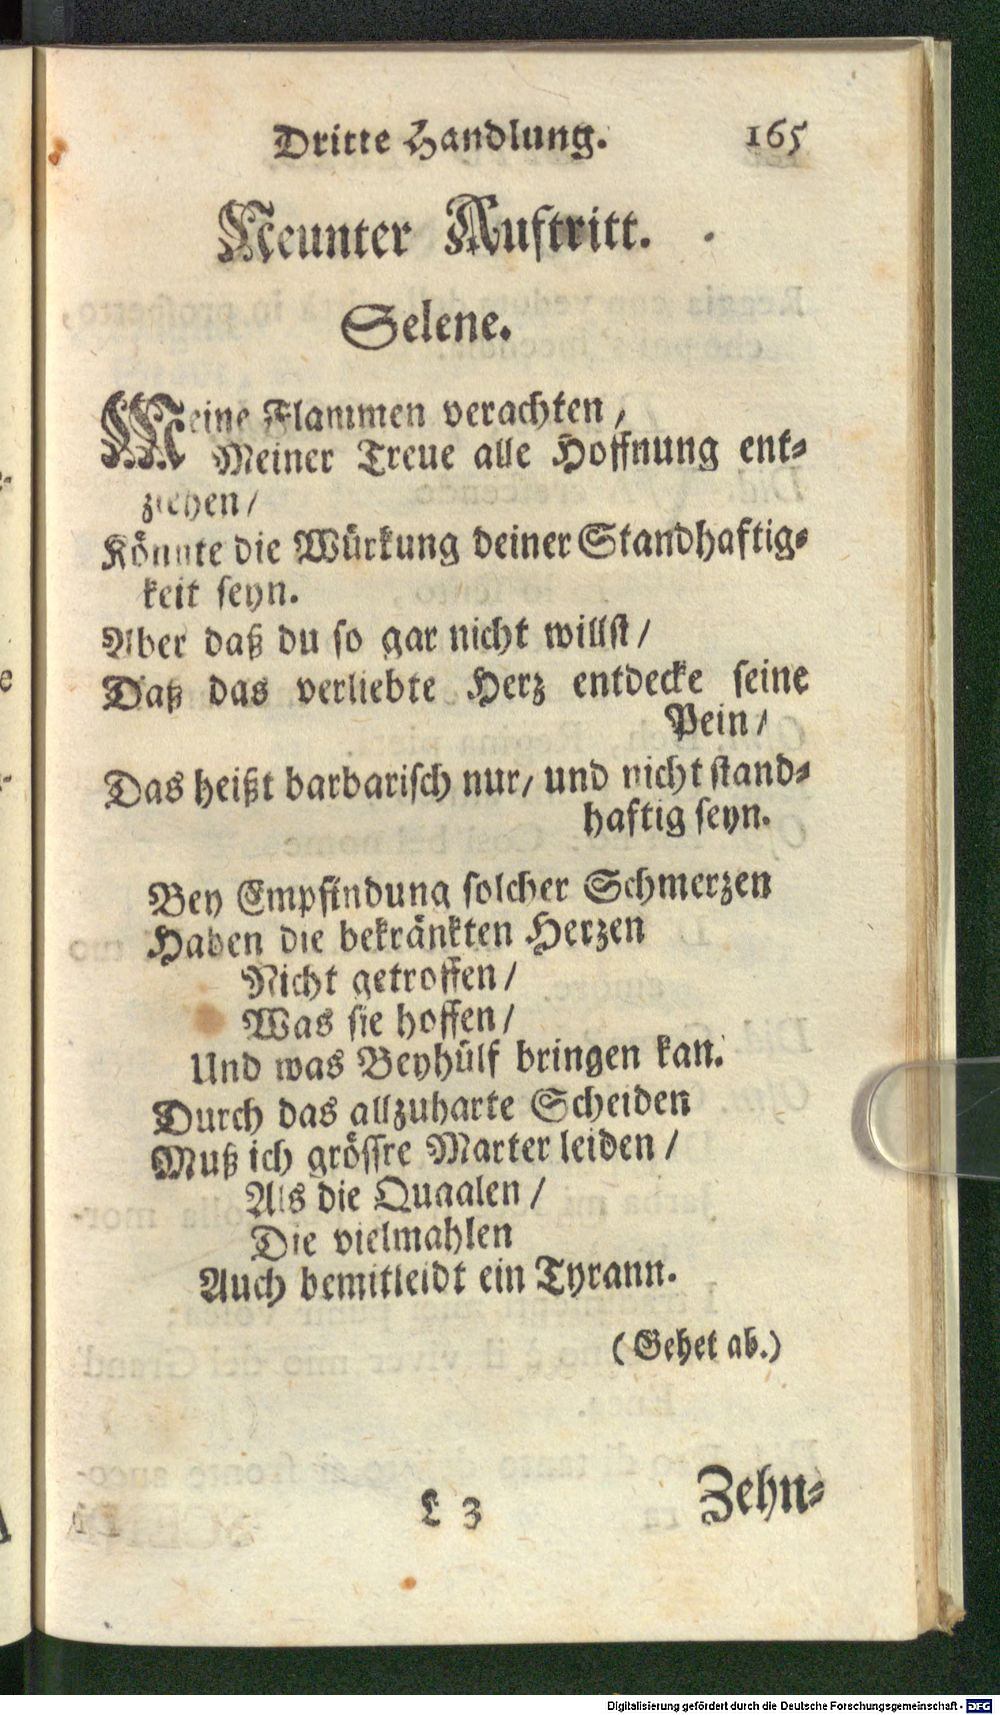 Dritte Handlung. 165
Neunter Auftritt.
Selene.
Meine Flammen verachten /
Meiner Treue alle Hoffnung ent-
ziehen /
Könnte die Würkung deiner Standhaftig-
keit seyn.
Aber daß du so gar nicht willst /
Daß das verliebte Herz entdecke seine
Pein /
Das heißt barbarisch nur / und nicht stand-
haftig seyn.
Bey Empfindung solcher Schmerzen
Haben die bekränkten Herzen
Nicht getroffen /
Was sie hoffen /
Und was Beyhülf bringen kan.
Durch das allzuharte Scheiden
Muß ich grössre Marter leiden /
Als die Quaalen /
Die vielmahlen
Auch bemitleidt ein Tyrann.
(Gehet ab.)
L 3 Zehn-
Digitalisierung gefördert durch die Deutsche Forschungsgemeinschaft - DFG